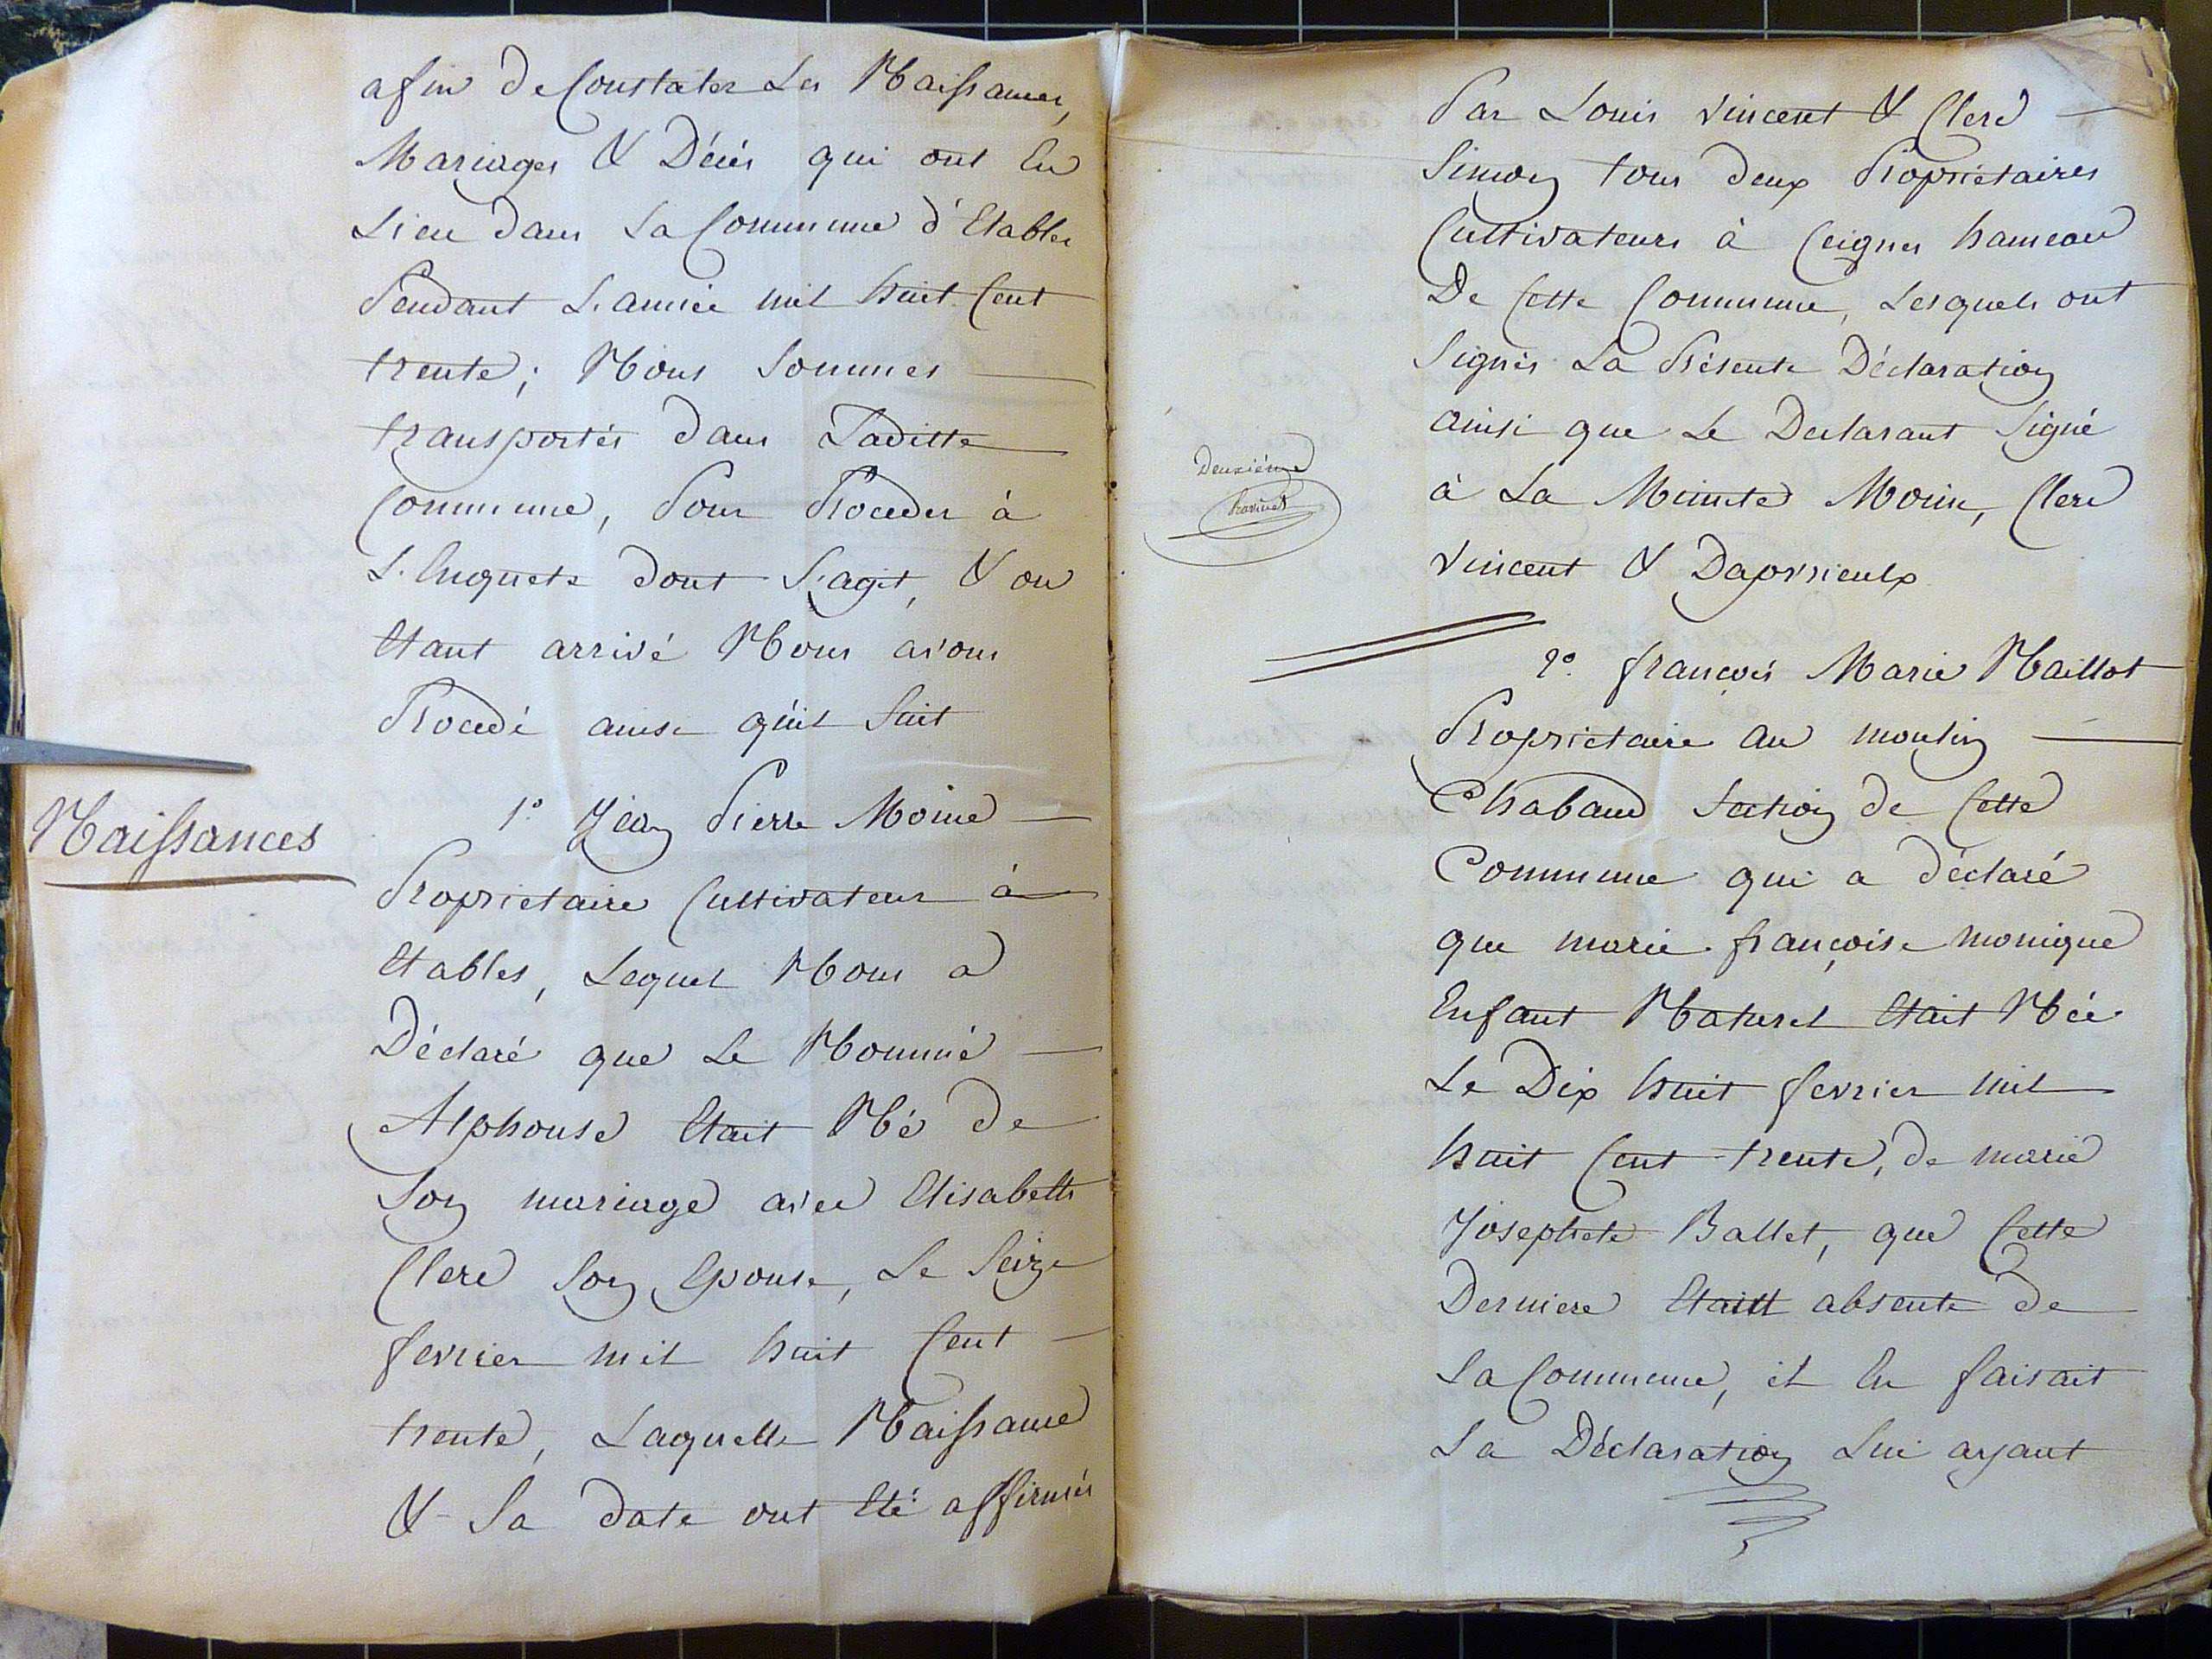 afin de Constater Les Naissances,
Mariages & Décès qui ont Eu
Lieu dans La Commune d'Etables
Pendant L'année mil huit Cent
trente; Nous Sommes
transportés dans Laditte
Commune, Pour Proceder à
L'Enquete dont S'agit, & ou
Etant arrivé Nous avons
Procedé ainsi qu'il Suit
Naissances
1° Jean Pierre Moine
Proprietaire Cultivateur à
Etables, Lequel Nous a
Déclaré que Le Nommé
Alphonse Etait Né de
Son mariage avec Elisabeth
Clerc Son Epouse, Le Seize
fevrier mil huit Cent
trente, Laquelle Naissance
& Sa date ont Eté affirmés
Par Louis Vincent & Clerc
Simon tous deux Propriétaires
Cultivateurs à Ceignes hameau
De Cette Commune, Lesquels ont
Signés La Présente Déclaration
ainsi que Le Declarant Signé
à La Minute Moine, Clerc
Vincent & Daprieulx
Deuxième
2° françois Marie Maillot
Proprietaire au moulin
Chabaud Section de Cette
Commune qui a déclaré
que marie françoise monique
Enfant Naturel Etait Née
Le Dix huit fevrier mil
huit Cent trente, de marie
Josephete Ballet, que Cette
Derniere Etait absente de
La Commune, et En faisait
La Déclaration Lui ayant